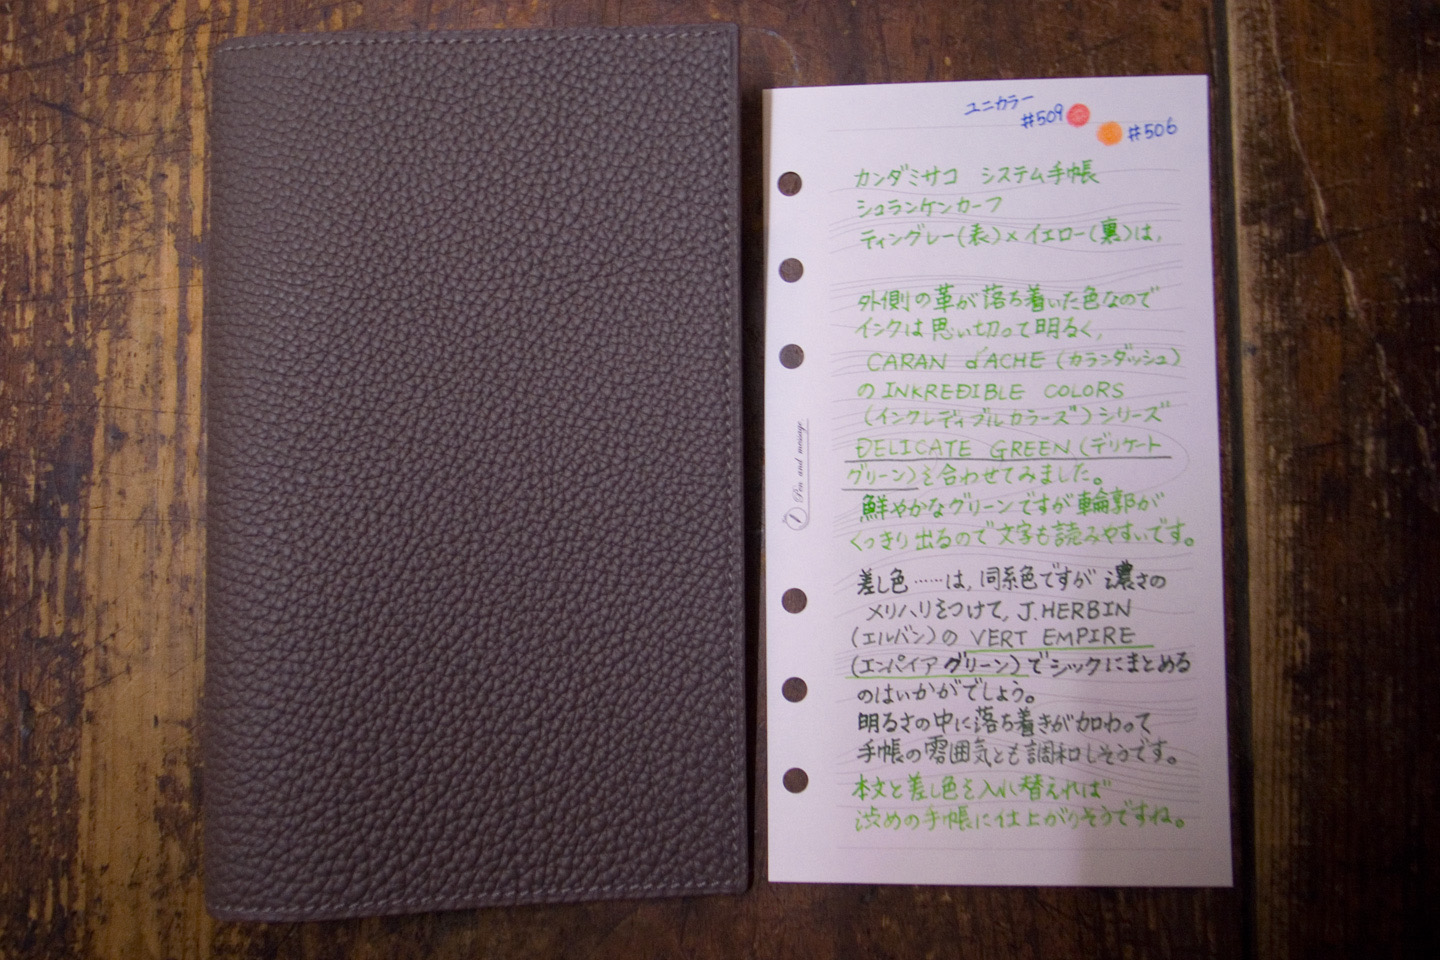 ユニカラー
#509
#506
カンダミサコ システム手帳
シュランケンカーフ
ティングレー(表)×イエロー(裏)は、
外側の革が落ち着いた色なので
インクは思い切って明るく、
CARAN d'ACHE (カランダッシュ)
の INKREDIBLE COLORS
(インクレディブルカラーズ)シリーズ
DELICATE GREEN (デリケート
グリーン)を合わせてみました。
鮮やかなグリーンですが輪郭が
くっきり出るので文字も読みやすいです。
差し色……は、同系色ですが濃さの
メリハリをつけて、J.HERBIN
(エルバン)の VERT EMPIRE
(エンパイアグリーン)でシックにまとめる
のはいかがでしょう。
明るさの中に落ち着きが加わって
手帳の雰囲気とも調和しそうです。
本文と差し色を入れ替えれば
渋めの手帳に仕上がりそうですね。
Pen and message.